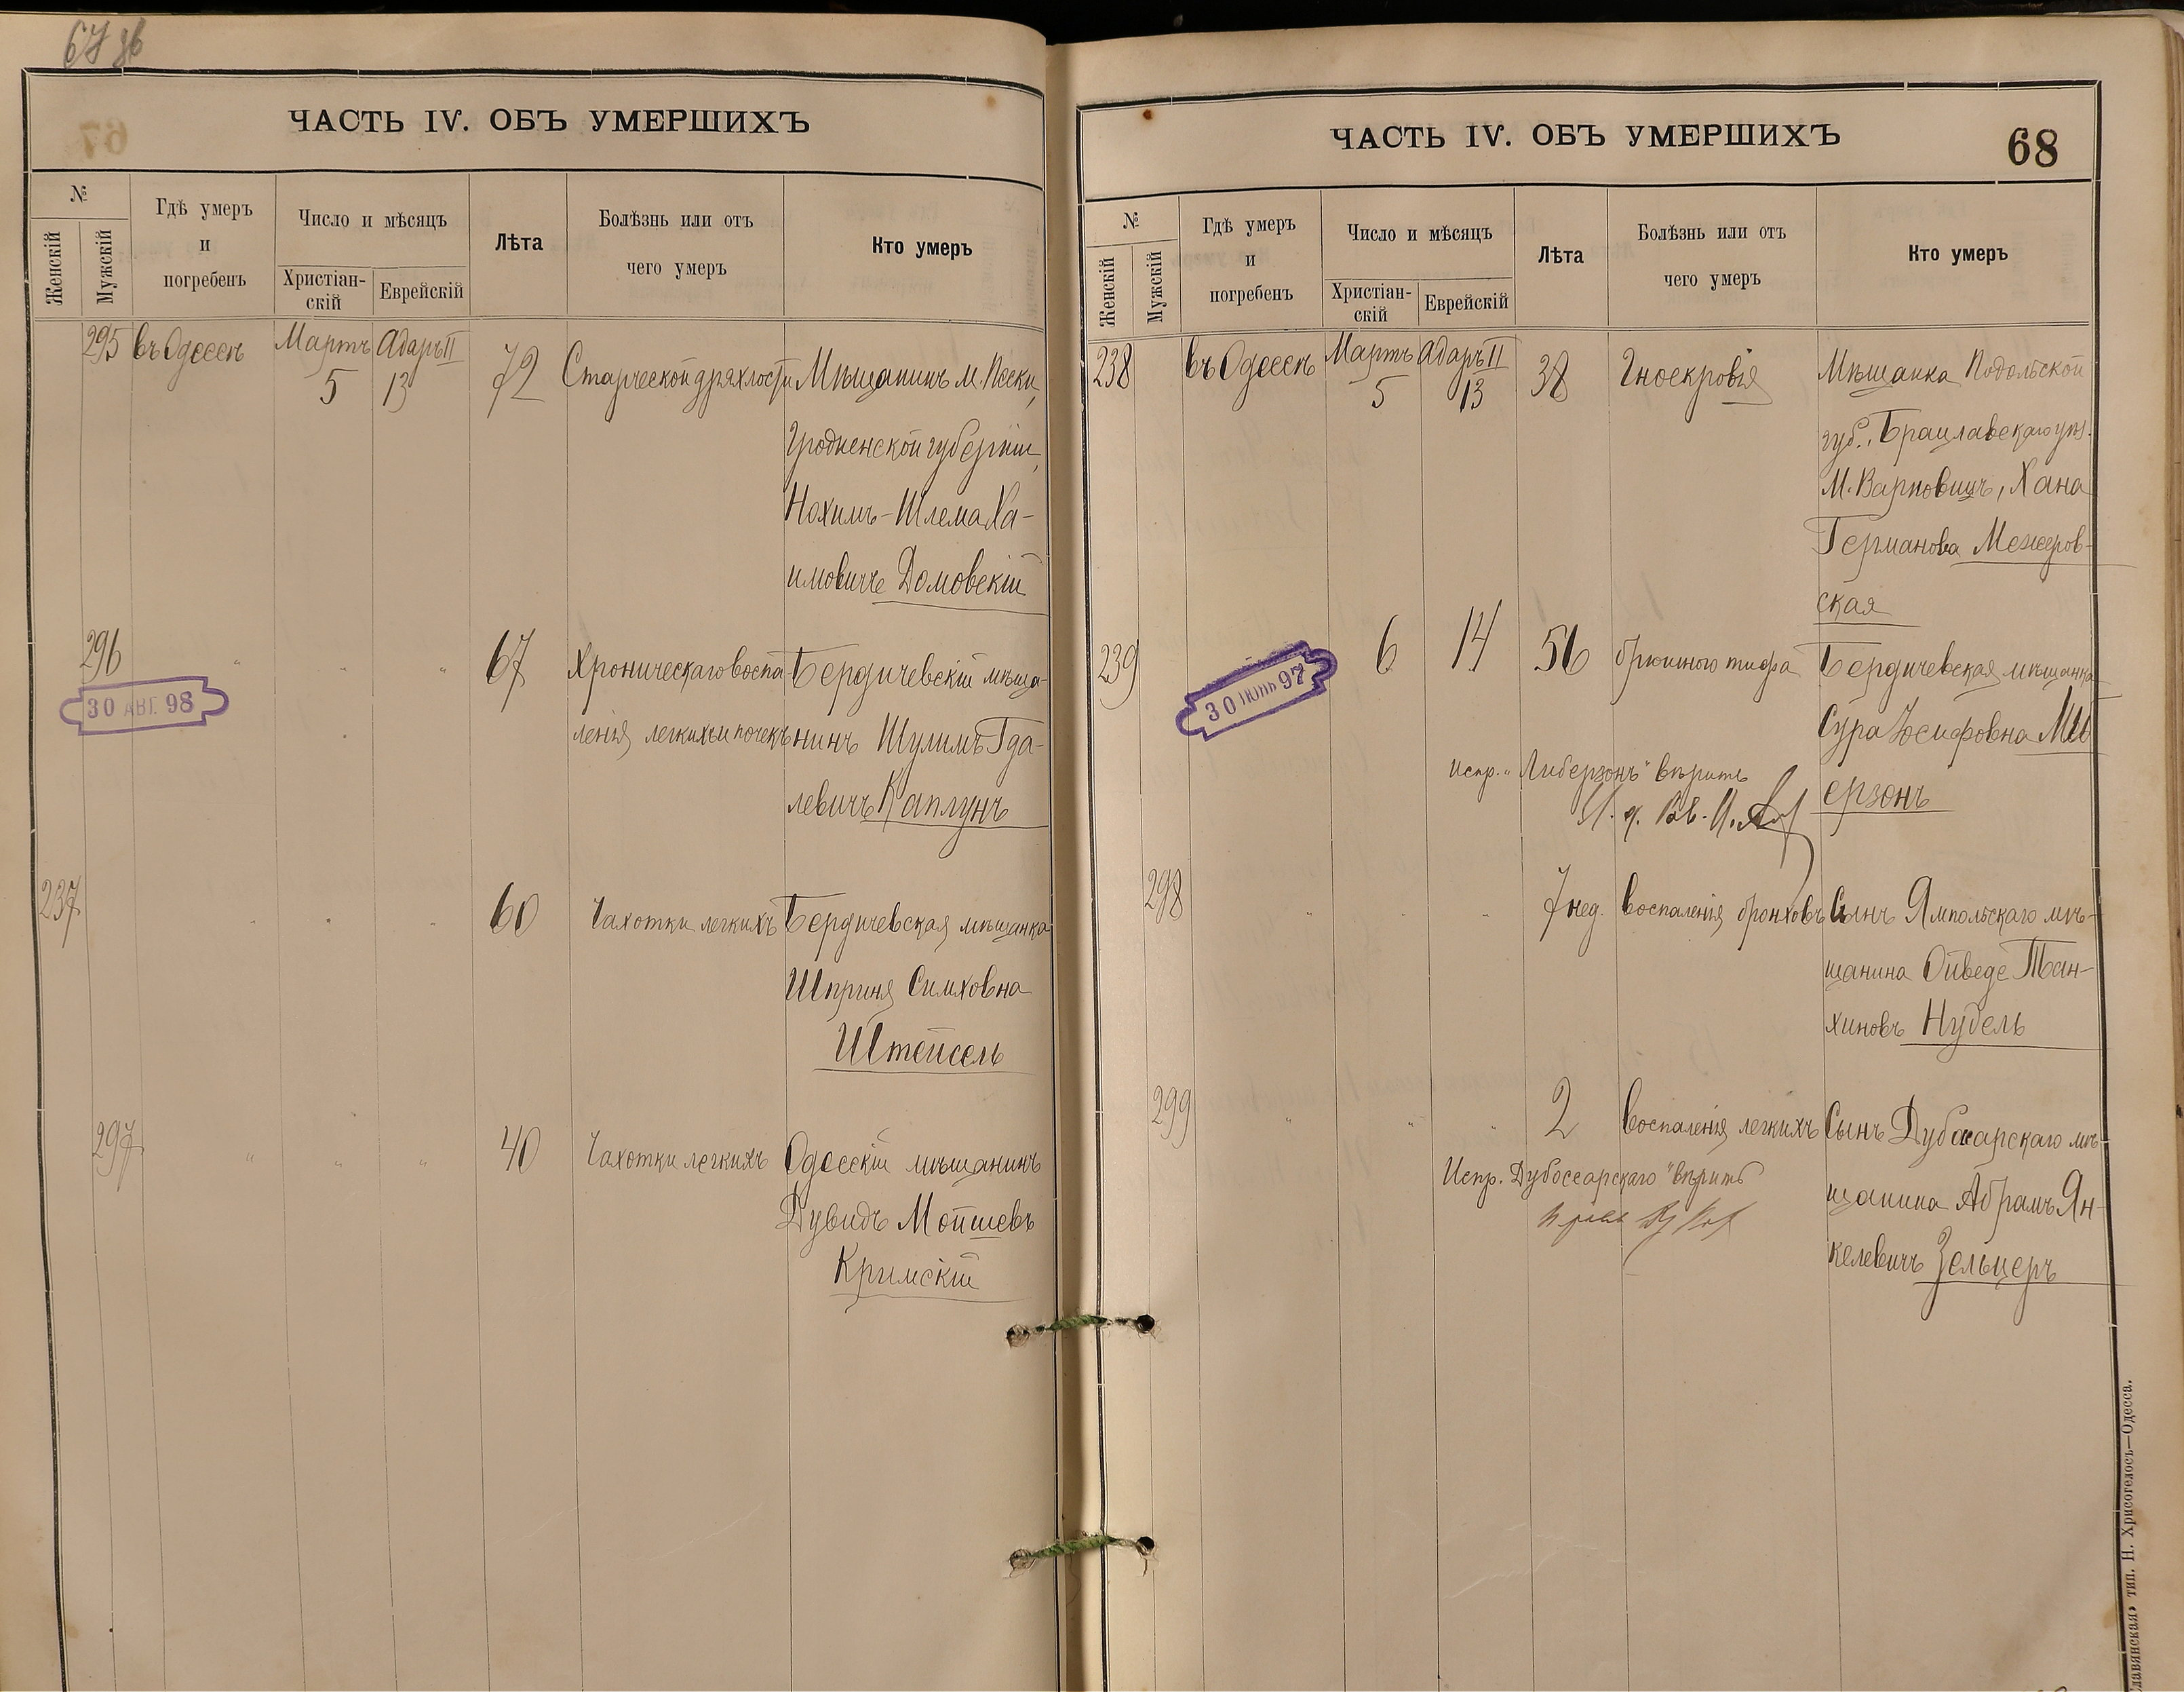 67 об
ЧАСТЬ IV. ОБЪ УМЕРШИХЪ
№
Женскій
Мужскій
Гдѣ умеръ
и
погребенъ
Число и мѣсяцъ
Христіан-
скій
Еврейскій
Лѣта
Болѣзнь или отъ
чего умеръ
Кто умеръ
295 въ Одессѣ Мартъ 5 Адаръ II 13 72 Старческой дряхлости Мѣщанинъ м. Пески,
Гродненской губерніи,
Нохимъ-Шлема Ха-
имовичъ Домовскій
296 " " " 67 Хроническаго воспа Бердичевскій мѣща-
ленія легкихъ и почекъ нинъ Шулимъ Гда-
левичъ Каплунъ
30 АВГ. 98
237 " " " 60 Чахотки легкихъ Бердичевская мѣщанка
Шприня Симховна
Штейсель
297 " " " 40 Чахотки легкихъ Одесскій мѣщанинъ
Дувидъ Мойшевъ
Кримскій
ЧАСТЬ IV. ОБЪ УМЕРШИХЪ
68
№
Женскій
Мужскій
Гдѣ умеръ
и
погребенъ
Число и мѣсяцъ
Христіан-
скій
Еврейскій
Лѣта
Болѣзнь или отъ
чего умеръ
Кто умеръ
238 въ Одессѣ Мартъ 5 Адаръ II 13 38 Гноекровія Мѣщанка Подольской
губ., Брацлавскаго уѣз.
М. Варповицъ, Хана
Германова Межеров-
ская
239 6 14 56 брюшного тифа Бердичевская мѣщанка
30 ІЮНЬ 97
Сура Іосифовна
ерзонъ
испр. "Либерзонъ" вѣрить
298 " " " 7 нед. воспаленія бронховъ Сынъ Ямпольскаго мѣ-
щанина Ойведе Тан-
хиновъ Нудель
299 " " " 2 воспаленія легкихъ Сынъ Дубоссарскаго мѣ-
щанина Абрамъ Ян-
келевичъ Зельцеръ
Испр. Дубоссарскаго" вѣрить
Славянская» тип. Н. Хрисогелосъ—Одесса.